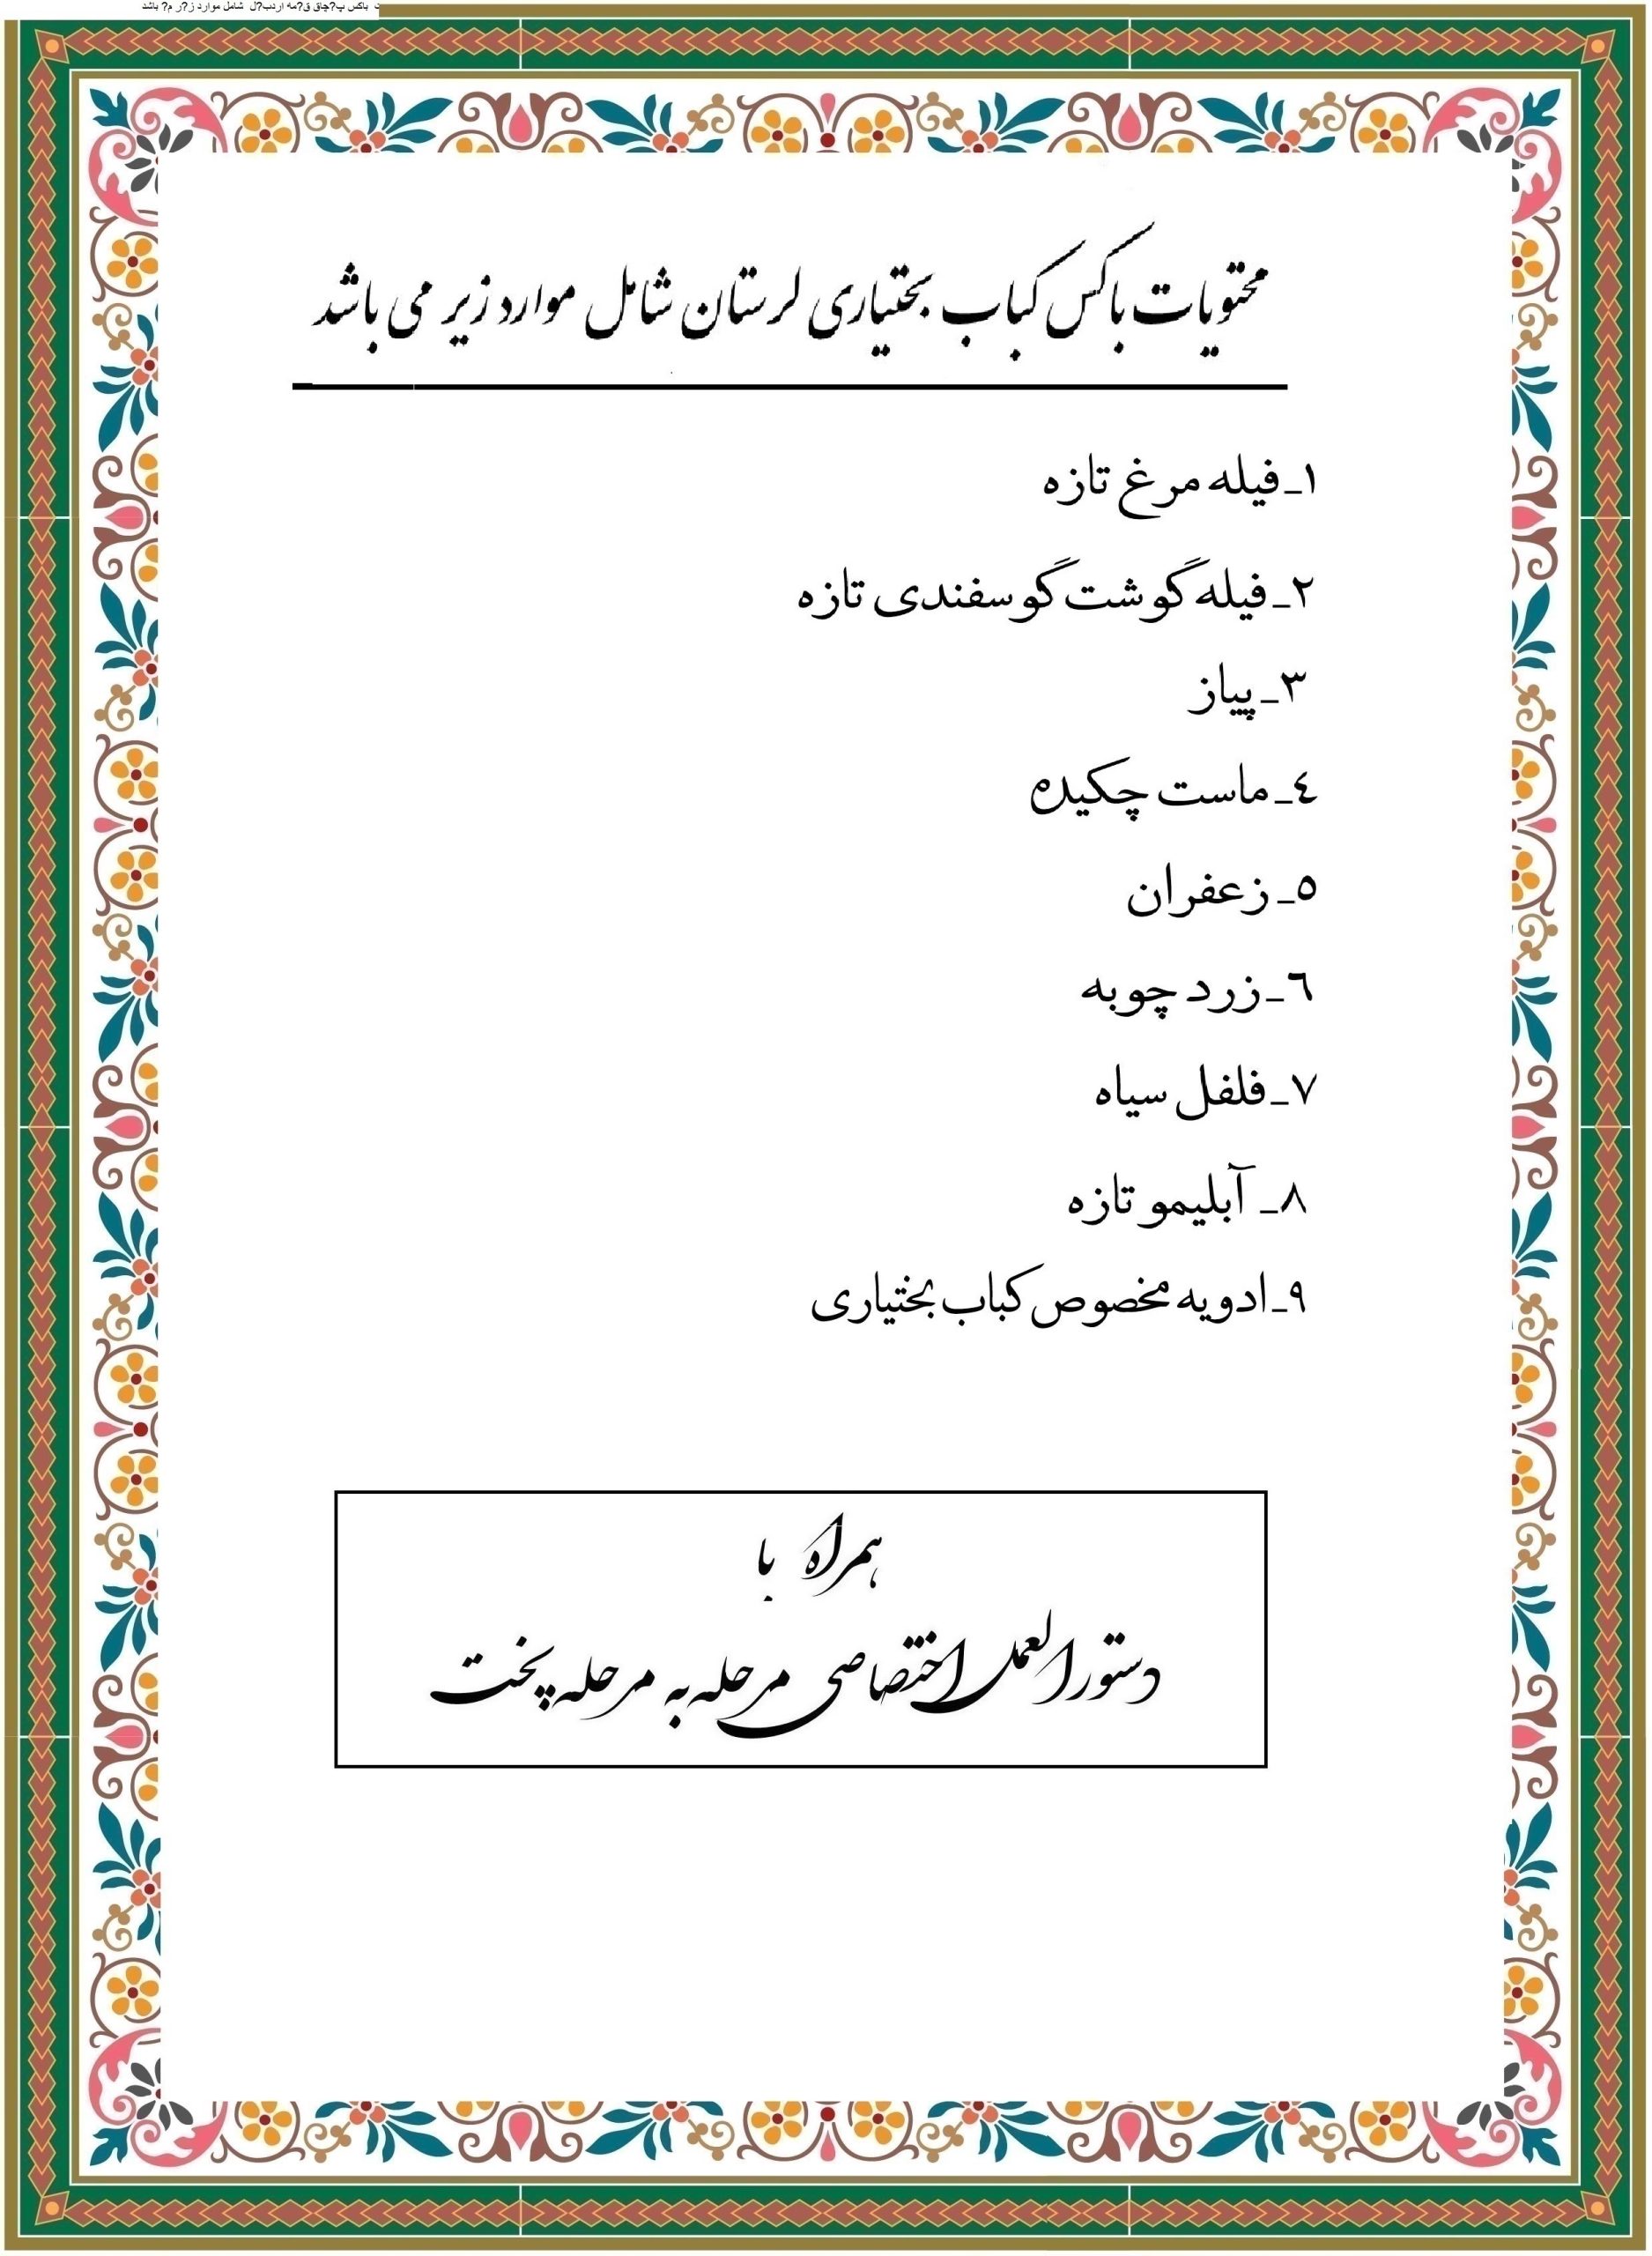 باکس پ?چاق ق?مه اردب?ل شامل موارد ز?ر م? باشد
محتویات باکس کباب بختیاری لرستان شامل موارد زیر می باشد
١_فیله مرغ تازه
٢_فیله گوشت گوسفندی تازه
٣_پیاز
٤_ماست چکیده
٥_زعفران
٦_زرد چوبه
٧_فلفل سیاه
٨_ آبلیمو تازه
٩_ادویه مخصوص کباب بختیاری
همراه با
دستورالعمل اختصاصی مرحله به مرحله پخت